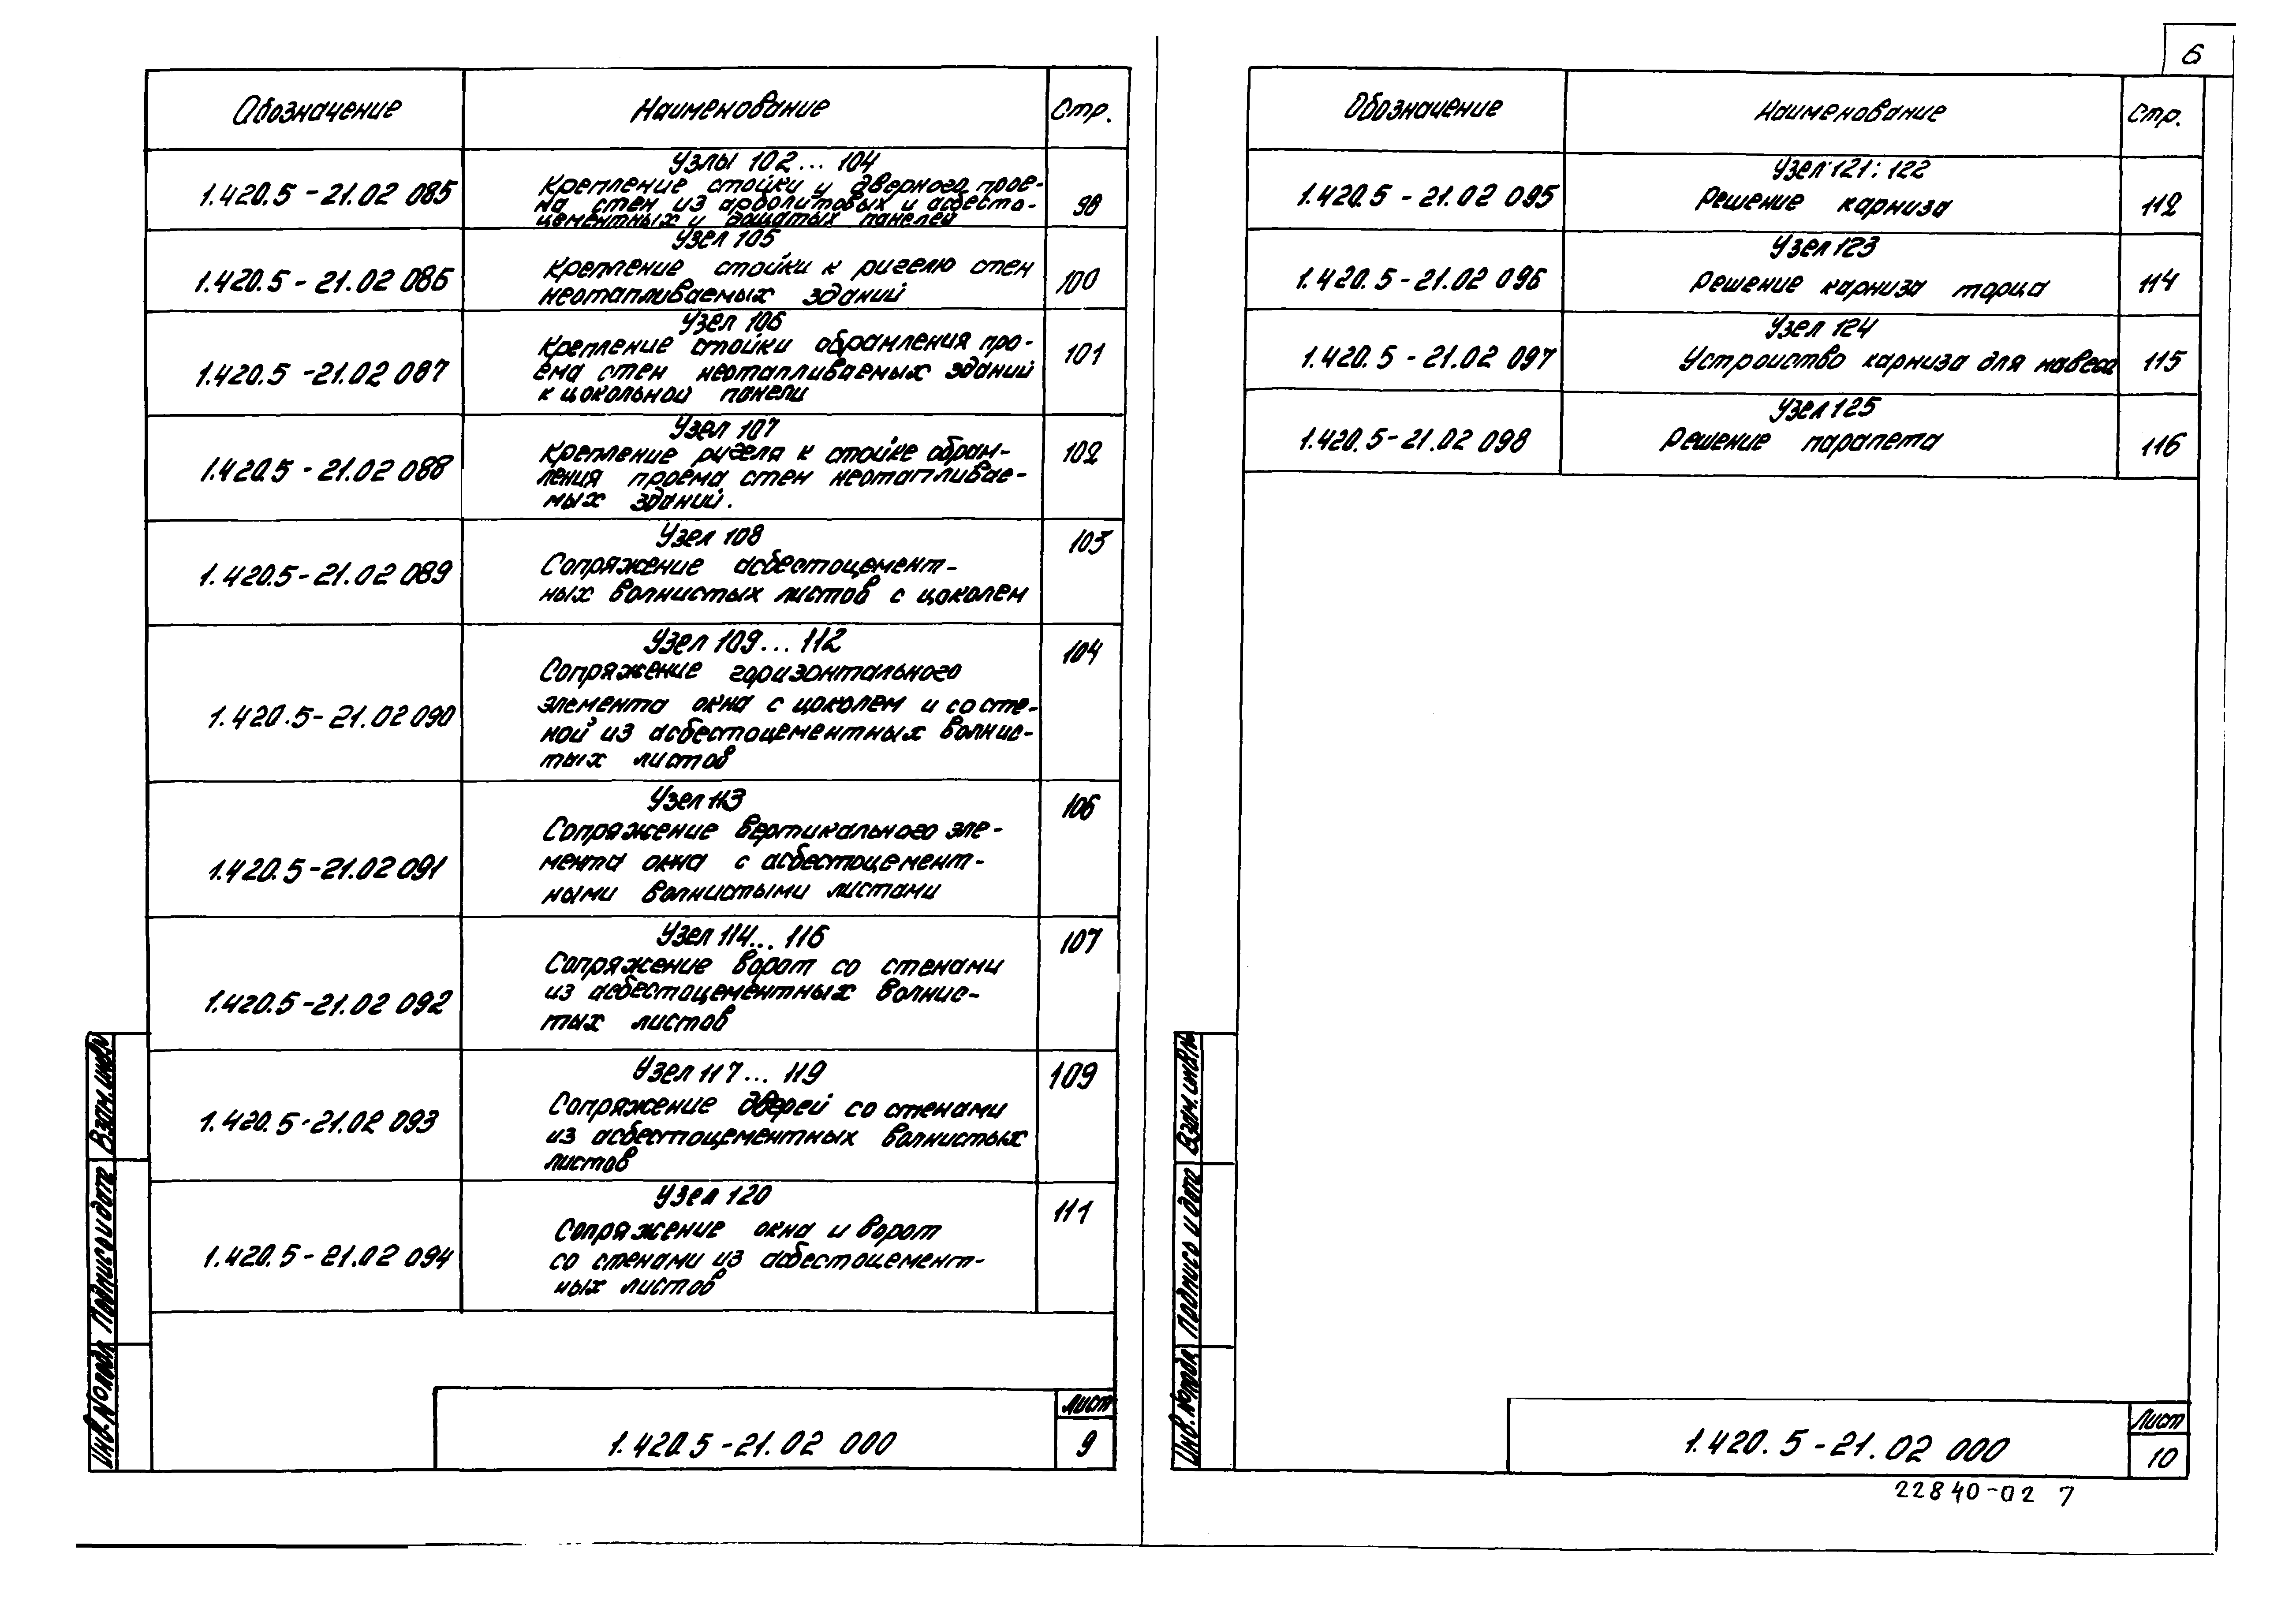 6
Обозначение Наименование Стр.
Узлы 102... 104
1.420.5-21.02 085 Крепление стойки и дверного прое-
ма стен из арболитовых и асбесто-
цементных и дощатых панелей 98
Узел 105
1.420.5-21.02 086 Крепление стойки к ригелю стен
неотапливаемых зданий 100
Узел 106
Крепление стойки обрамления про- 101
1.420.5-21.02 087 ема стен неотапливаемых зданий
к цокольной панели
Узел 107
Крепление ригеля к стойке обрам- 102
1.420.5-21.02 088 ления проема стен неотапливае-
мых зданий.
Узел 108 103
1.420.5-21.02 089 Сопряжение асбестоцемент-
ных волнистых листов с цоколем
Узел 109... 112 104
Сопряжение горизонтального
элемента окна с цоколем и со сте-
1.420.5-21.02 090 ной из асбестоцементных волнис-
тых листов
Узел 113 106
Сопряжение вертикального эле-
1.420.5-21.02 091 мента окна с асбестоцемент-
ными волнистыми листами
Узел 114... 116 107
Сопряжение ворот со стенами
1.420.5-21.02 092 из асбестоцементных волнис-
тых листов
Узел 117... 119 109
1.420.5-21.02 093 Сопряжение дверей со стенами
из асбестоцементных волнистых
листов
Узел 120 111
Сопряжение окна и ворот
1.420.5-21.02 094 со стенами из асбестоцемент-
ных листов
Взам. инв.№
Подпись и дата
Инв.№подл.
1.420.5-21.02 000
Лист
9
Обозначение Наименование Стр.
Узел 121; 122
1.420.5-21.02 095 Решение карниза 112
Узел 123
1.420.5-21.02 096 Решение карниза торца 114
Узел 124
1.420.5-21.02 097 Устройство карниза для навеса 115
Узел 125
1.420.5-21.02 098 Решение парапета 116
Взам. инв.№
Подпись и дата
Инв.№подл.
1.420.5-21.02 000
Лист
10
22840-02 7